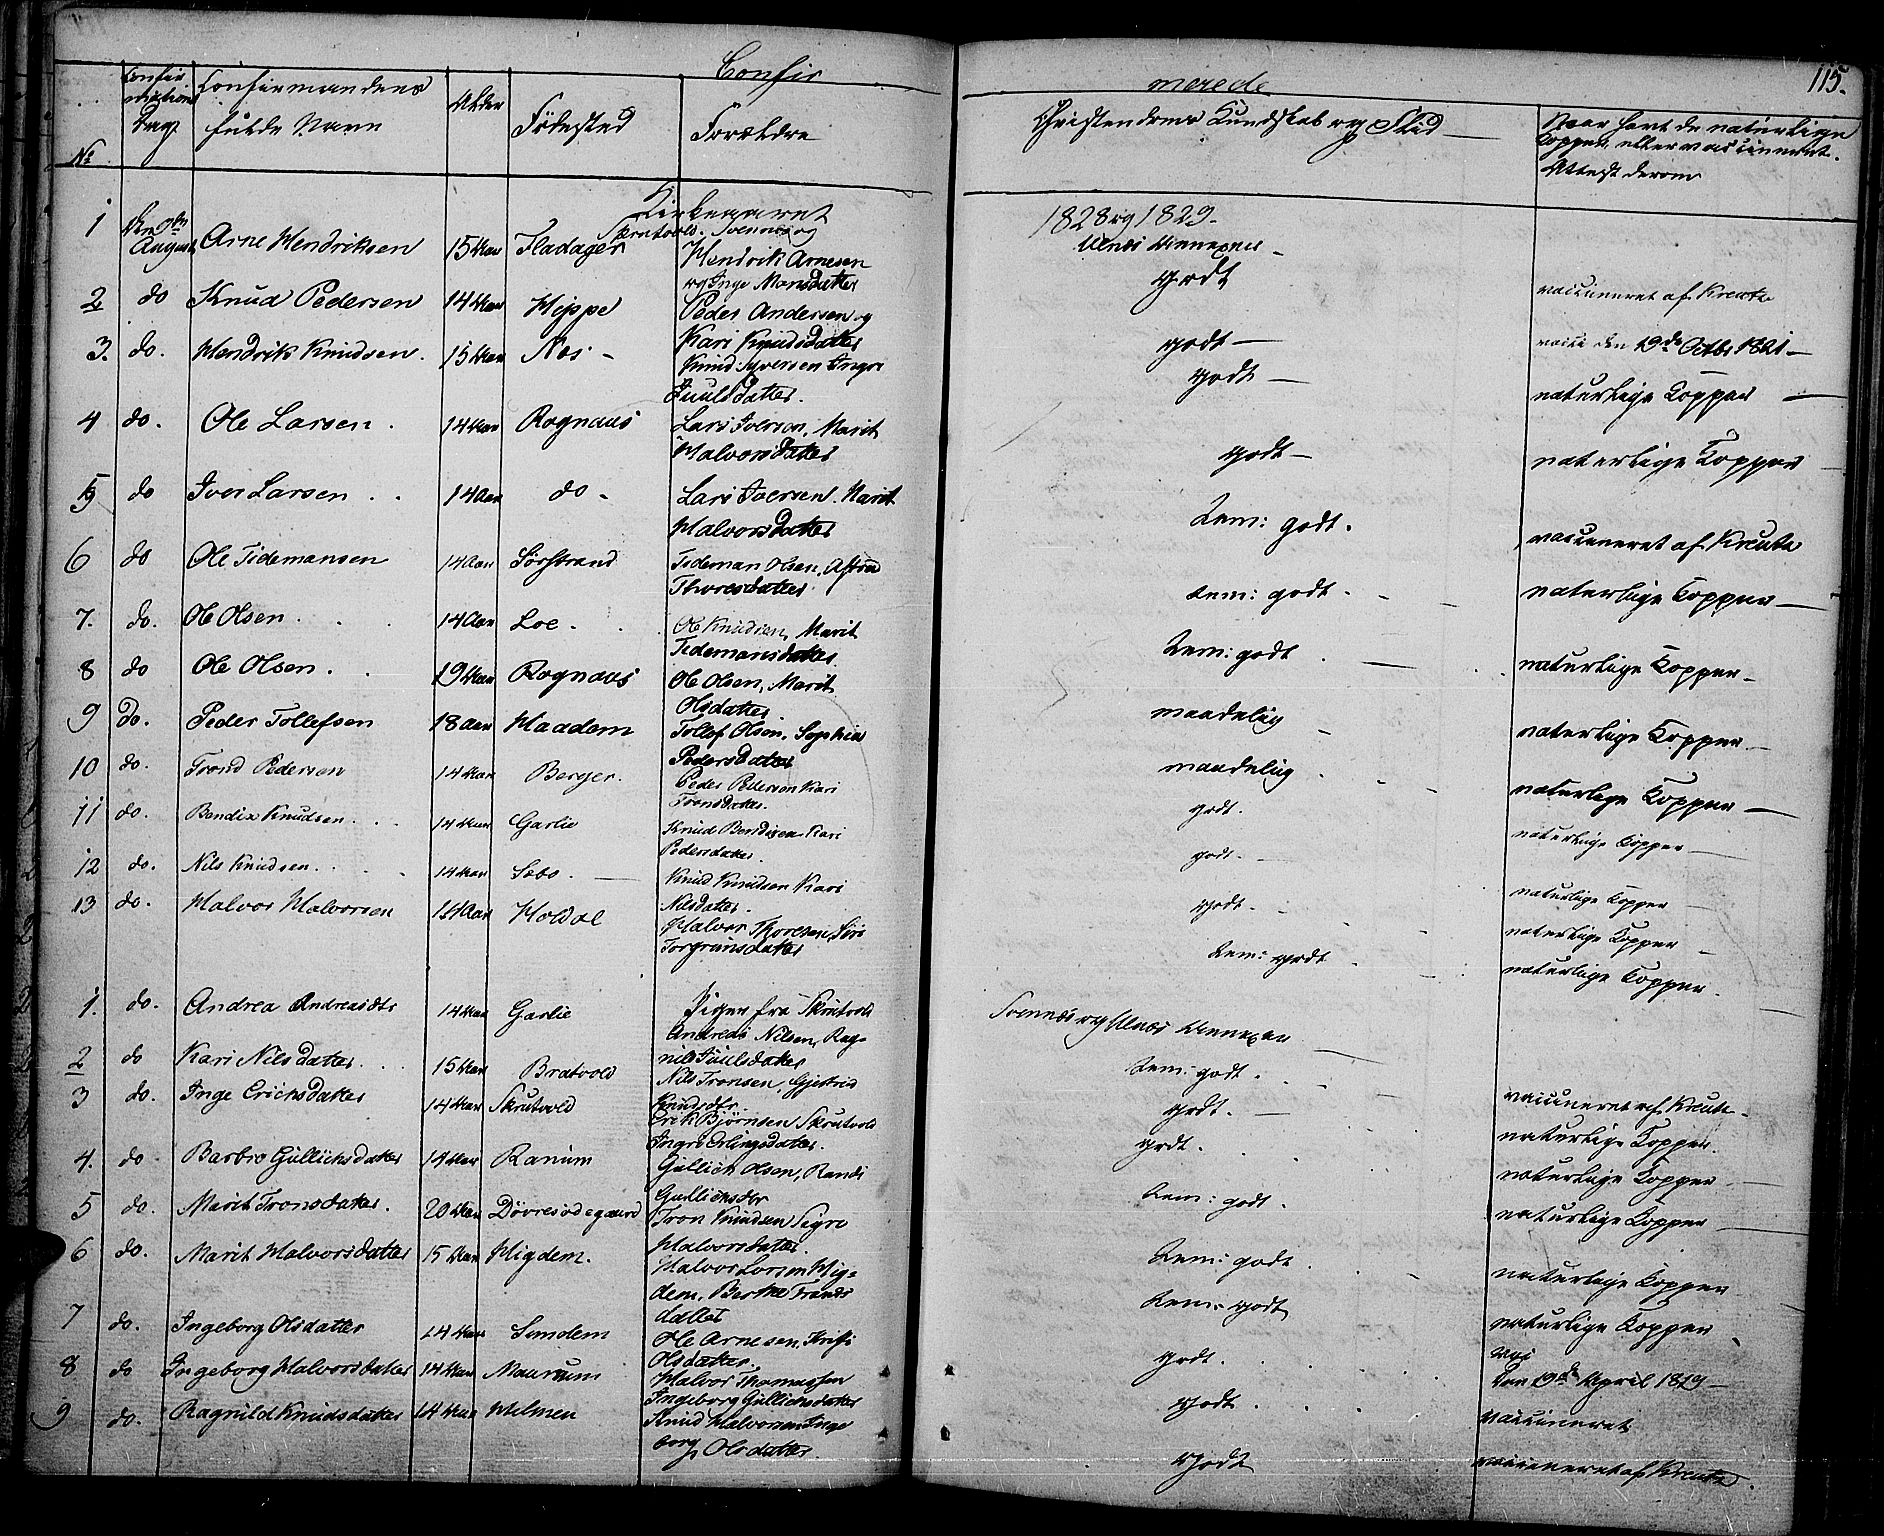 Confir
merede
115.
No
Confirmations Dag
Confirmandens fulde Navn
Alder
Fødested
Forældre
Christendoms Kundskab og Flid
Naar havt de naturlige Kopper, eller vaccineret. Attest derom
Kirkeaaret 1828 og 1829.
Skrutvold, Svennes og Ulnæs Annexer
1 Den 9de August Arne Hendriksen 15 Aar Fladager Hendrik Arnesen og Inge Monsdatter godt vaccineret af Kreute
2 do Knud Pedersen 14 Aar Hippe Peder Andersen og Kari Knudsdatter godt vacci den 19de Octbr 1821
3. do. Hendrik Knudsen. 15 Aar Nes Knud Syversen Ingri Juulsdatter. godt naturlige Kopper
4 do. Ole Larsen. 14 Aar Rognaas Lars Iverson, Marit Halvorsdatter godt naturlige Kopper
5 do Iver Larsen 14 Aar do Lars Iversen. Marit Halvorsdatter Tem: godt. vaccineret af Kreute
6 do Ole Tidemansen 14 Aar Sørstrand Tideman Olsen, Astri Thoresdatter tem: godt. naturlige Kopper
7. do. Ole Olsen. 14 Aar Loe. Ole Knudsen, Marit Tidemansdatter Tem: godt naturlige Kopper
8 do Ole Olsen. 19 Aar Rognaas Ole Olsen, Marit Olsdatter maadelig naturlige Kopper
9 do. Peder Tollefsen 18 Aar Haadem Tollef Olsen, Sophia Pedersdatter maadelig naturlige Kopper
10 do. Trond Pedersen 14 Aar Berger. Peder Pedersen Kari Tronsdatter. godt. naturlige Kopper
11 do. Bendix Knudsen. 14 Aar Garlie Knud Bendixen Kari Pedersdatter. godt. naturlige Kopper
12 do. Nils Knudsen. 14 Aar Sæbo. Knud Knudsen Kari Nilsdatter. godt. naturlige Kopper
13 do. Halvor Halvorsen 14 Aar Holdal Halvor Thoresen, Siri Torgrimsdatter tem: godt naturlige Kopper.
Piger fra Skrutvold Svennes og Ulnæs Annexer
1. do. Andrea Andreasdtr 14 Aar Garlie Andreas Nilsen, Ragnild Juulsdatter Tem: godt. vaccineret af Kreute
2 do Kari Nilsdatter. 15 Aar Bratvold Nils Tronsen, Gjertrid Knudsdtr. godt. naturlige Kopper.
3 do. Inge Erichsdatter 14 Aar Skrutvold Erik Bjørnsen Skrutvold Ingri Erlingsdatter. godt. naturlige Kopper
4. do Barbro Gullichsdatter 14 Aar Ranum Gullich Olsen, Randi Gullichsdtr tem: godt. naturlige Kopper
5 do. Marit Tronsdatter. 20 Aar Døvresødegaard Tron Knudsen Sigri Halvorsdatter. tem: godt naturlige Kopper
6 do. Marit Halvorsdatter 15 Aar Higdem. Halvor Larsen Higdem, Berthe Frandsdatter tem: godt naturlige Kopper
7 do. Ingeborg Olsdatter 14 Aar Semdem Ole Arnesen, Kristi Olsdatter. godt. vac den 9de April 1819
8 do Ingeborg Halvorsdatter 14 Aar Maurum Halvor Thomassen Ingeborg Gullichsdatter godt vaccineret
9 do. Ragnild Knudsdatter 14 Aar Helmen Knud Halvorsen Ingeborg Olsdatter. godt vaccineret af Kreute.